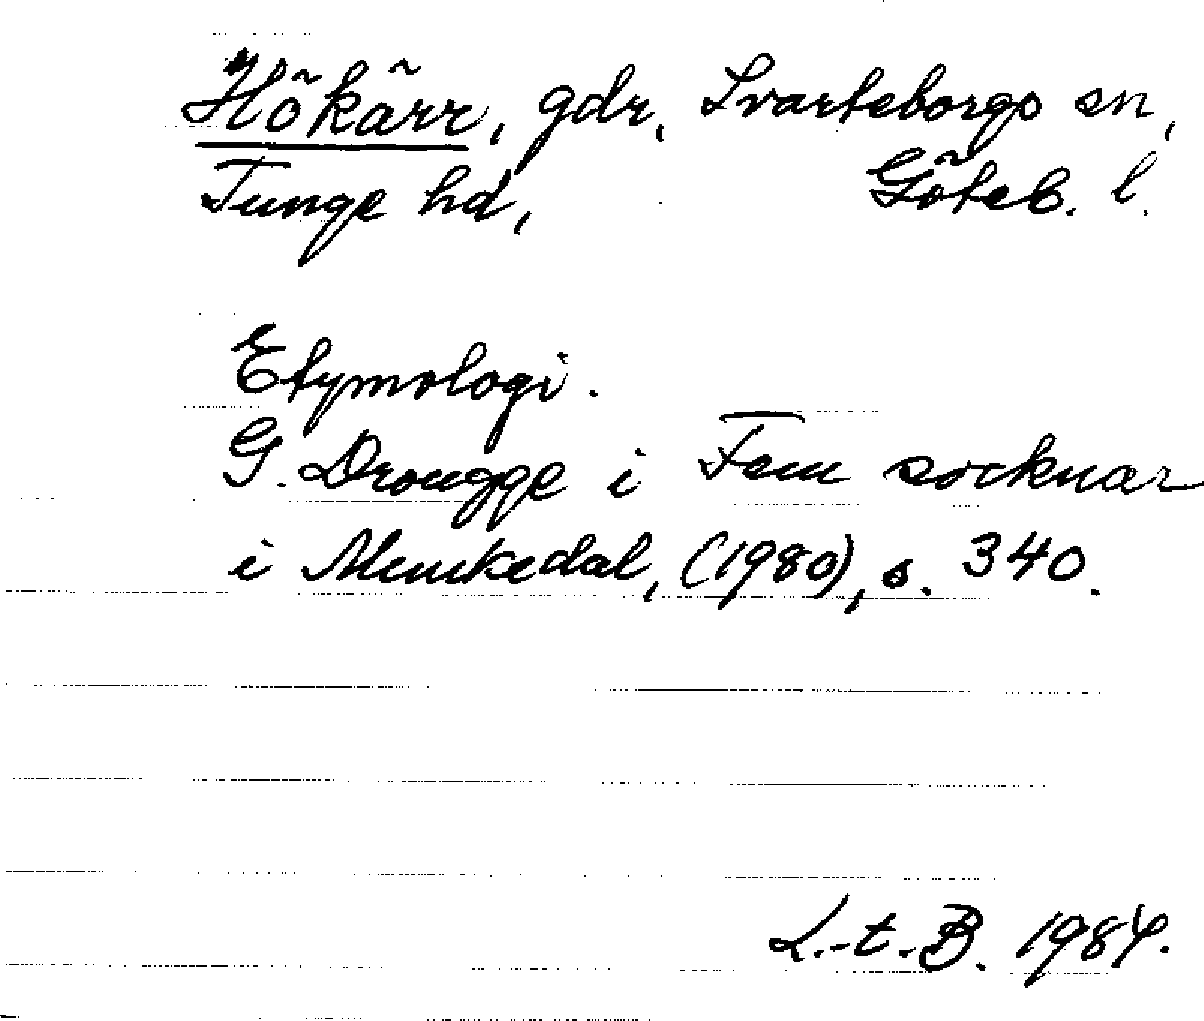 Hökärr, gdr, Svarteborgs sn,
Tunge hd, Göteb. l.
Etymologi.
G. Drougge i Fem socknar
i Munkedal, (1980), s. 340.
L.-t.-B. 1984.